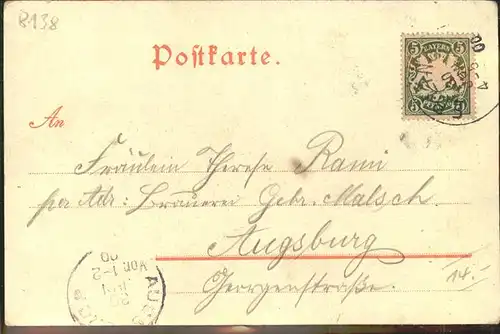 8138
Postkarte.
BAYERN
5 5
5 5
An
Fräulein Therese Rami
per Adr: Brauerei Gebr. Malsch.
Augsburg
Georgenstraße.
14.-
AUG
VOR. 1-2
00